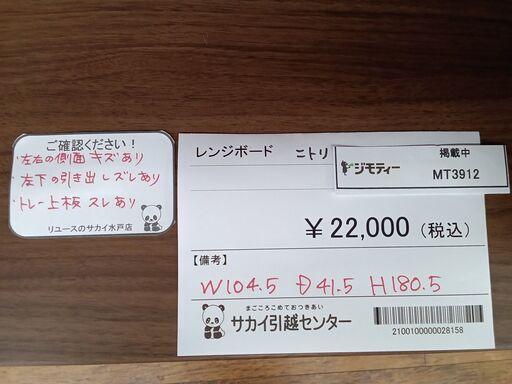 ご確認ください！
・左右の側面 キズあり
・左下の引き出し ズレあり
・トレー上板 スレあり
リユースのサカイ水戸店
レンジボード ニトリ
ジモティー
掲載中
MT3912
￥22,000（税込）
【備考】
W104.5 D41.5 H180.5
まごころこめておつきあい
サカイ引越センター
2100100000028158